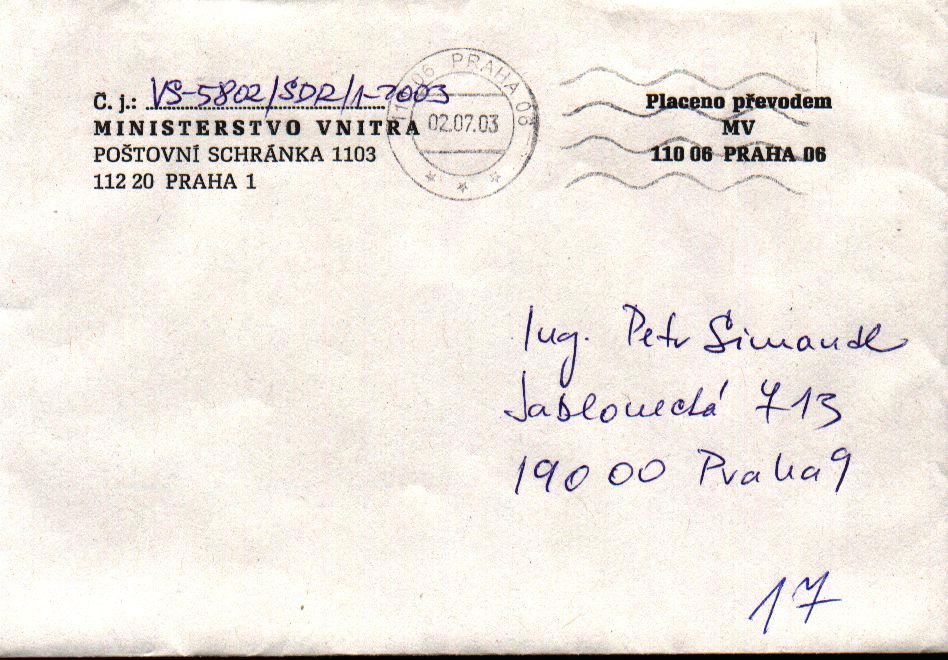 Č. j.: VS-5802/SDR/1-2003
MINISTERSTVO VNITRA
POŠTOVNÍ SCHRÁNKA 1103
112 20 PRAHA 1
06 PRAHA 06
02.07.03
Placeno převodem
MV
110 06 PRAHA 06
Ing. Petr Šimandl
Jablonecká 713
190 00 Praha 9
17